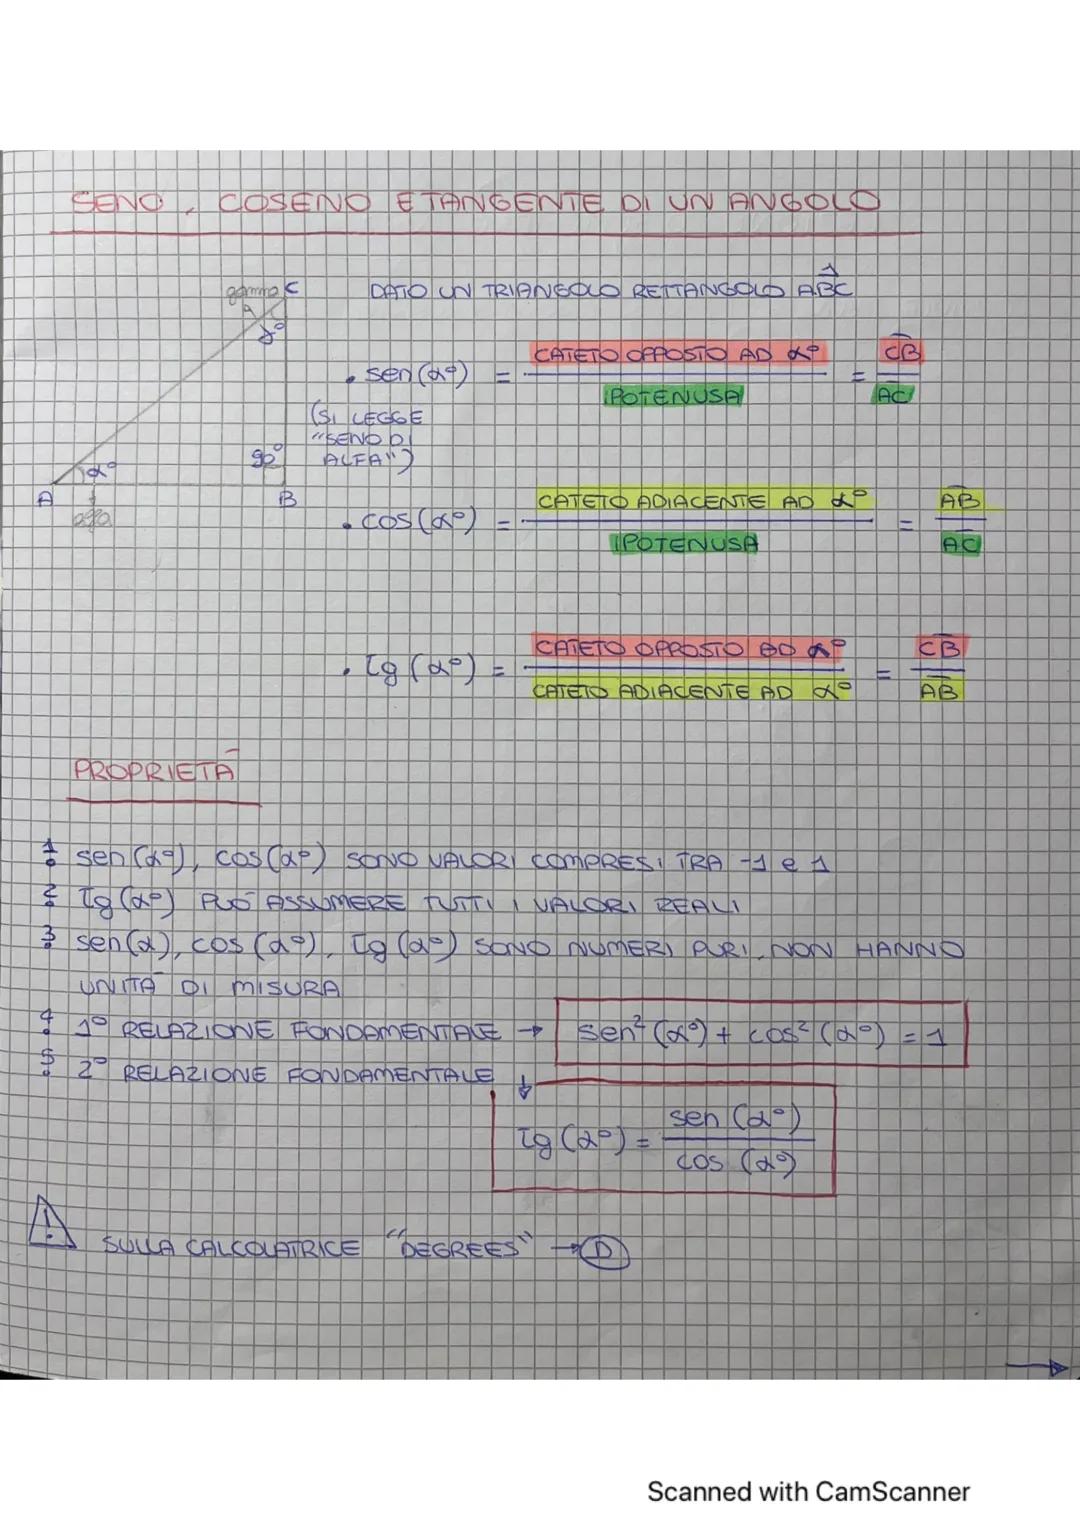 SENO, COSENO E TANGENTE DI UN ANGOLO
gamma C
DATO UN TRIANGOLO RETTANGOLO ABC
γ°
• sen(α°) = CATETO OPPOSTO AD α° / IPOTENUSA = CB / AC
(SI LEGGE
"SENO DI
ALFA")
90°
α°
A
B
• cos(α°) = CATETO ADIACENTE AD α° / IPOTENUSA = AB / AC
• tg(α°) = CATETO OPPOSTO AD α° / CATETO ADIACENTE AD α° = CB / AB
PROPRIETÀ
1° sen(α°), cos(α°) SONO VALORI COMPRESI TRA -1 e 1
2° tg(α°) PUÒ ASSUMERE TUTTI I VALORI REALI
3° sen(α), cos(α°), tg(α°) SONO NUMERI PURI, NON HANNO
UNITÀ DI MISURA
4° 1° RELAZIONE FONDAMENTALE → sen²(α°) + cos²(α°) = 1
5° 2° RELAZIONE FONDAMENTALE ↓
tg(α°) = sen(α°) / cos(α°)
! SULLA CALCOLATRICE "DEGREES" → D
Scanned with CamScanner